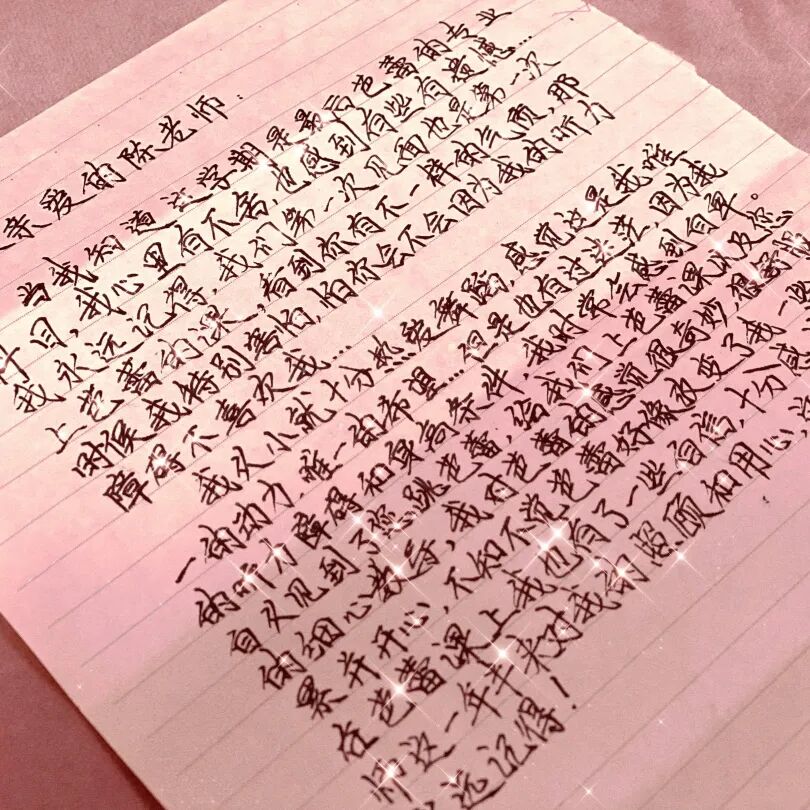 亲爱的陈老师:
当我知道这学期是最后芭蕾的专业
我心里有不舍,也感到有些有遗憾...
我永远记得,我们第一次见面也是第一次
上芭蕾的课,看到你有不一样的气质,那
时侯我特别害怕,怕你会不会因为我的听力
障碍不喜欢我...
我从小就十分热爱舞蹈,感觉这是我唯
一的动力,唯一的希望...但是也有过失去,因为我
的听力障碍和身高条件,我时常会感到自卑。
自从见到了您跳芭蕾,给我们上芭蕾课以及您
的细心教导,我对芭蕾的感觉很奇妙
累并开心,不知不觉芭蕾好像改变了我一些
在芭蕾课上我也有了一些自信,十分感
师这一年半来对我的照顾和用心,
远记得!